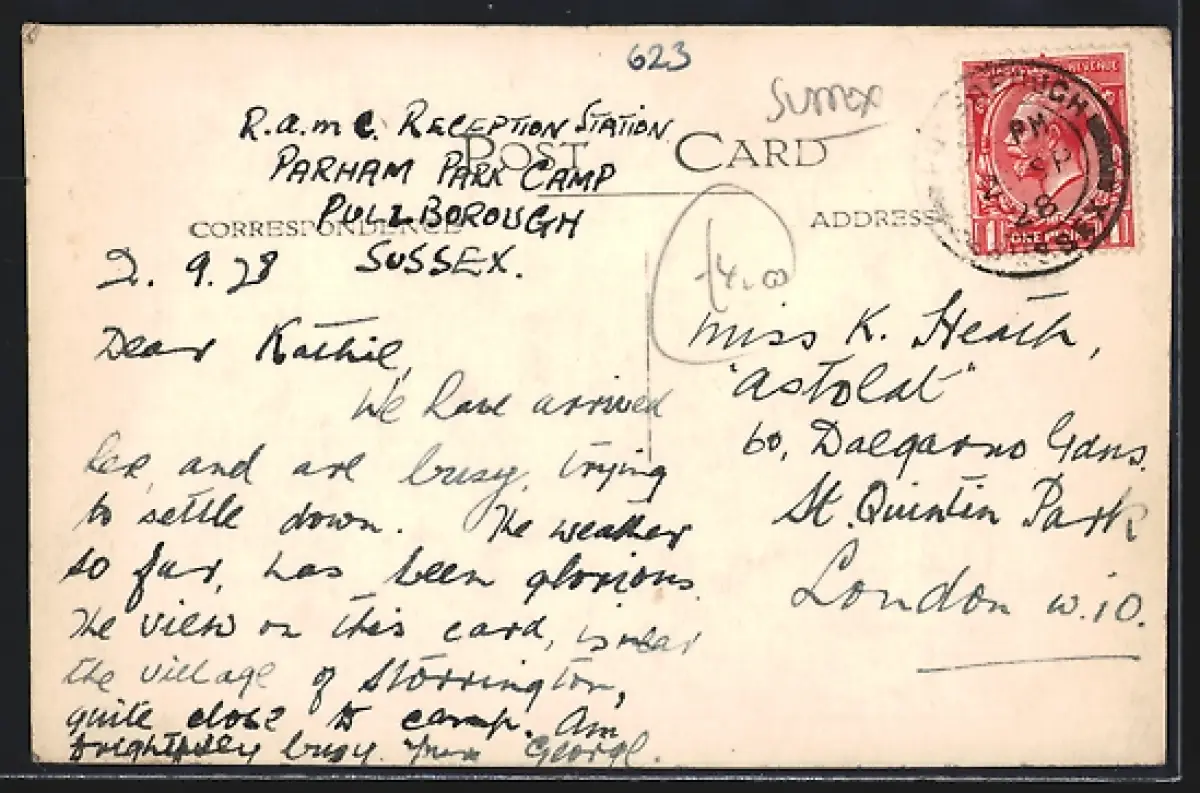 623
Sussex
R.A.M.C. RECEPTION STATION
PARHAM PARK CAMP
PULLBOROUGH
SUSSEX.
POST CARD
CORRESPONDENCE
ADDRESS
REVENUE
ONE PENNY
PM
28
SUSSEX
£4.00
2. 9. 28
Dear Kathie,
We have arrived
here, and are busy, trying
to settle down. The weather
so far, has been glorious.
The view on this card, is near
the village of Storrington,
quite close to camp. Am
frightfully busy. Yours George.
Miss K. Heath,
"Astolat"
60, Dalgarno Gdns.
St. Quintin Park
London W.10.